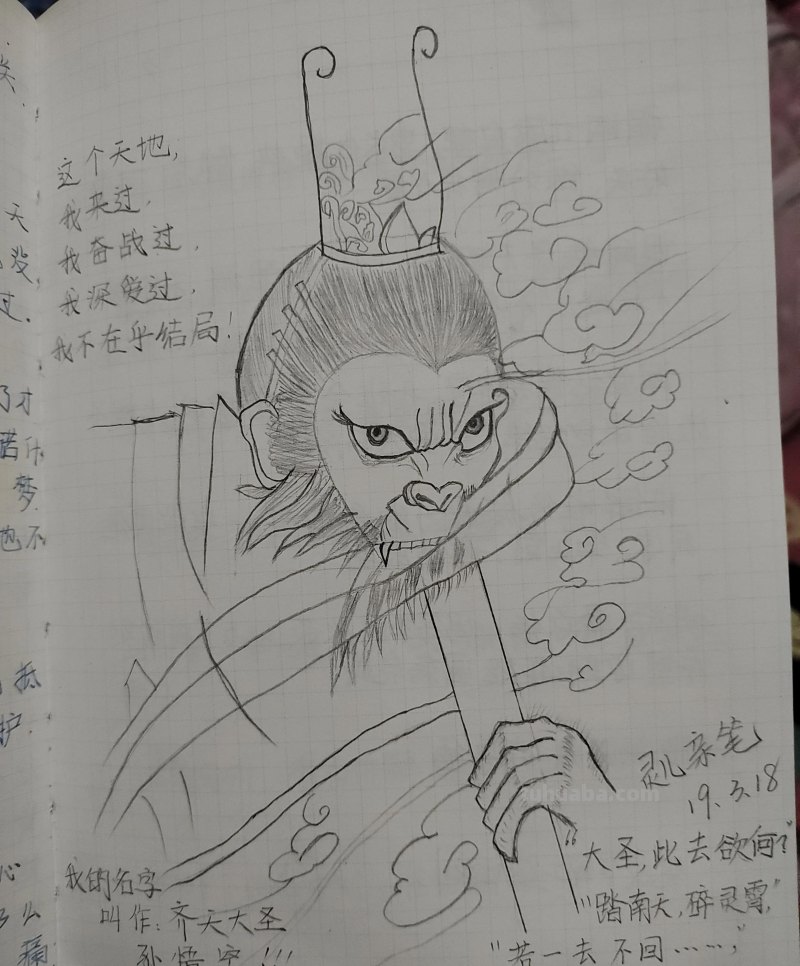 这个天地,
我来过,
我奋战过,
我深爱过,
我不在乎结局!
灵儿亲笔
19.3.18
"大圣,此去欲何?"
"踏南天,碎灵霄,"
"若一去不回……,"
我的名字
叫作:齐天大圣
孙悟空!!!
天
没
过.
了才
诺什
梦
也不
抵
护
心
么
痛
uhuaba.com